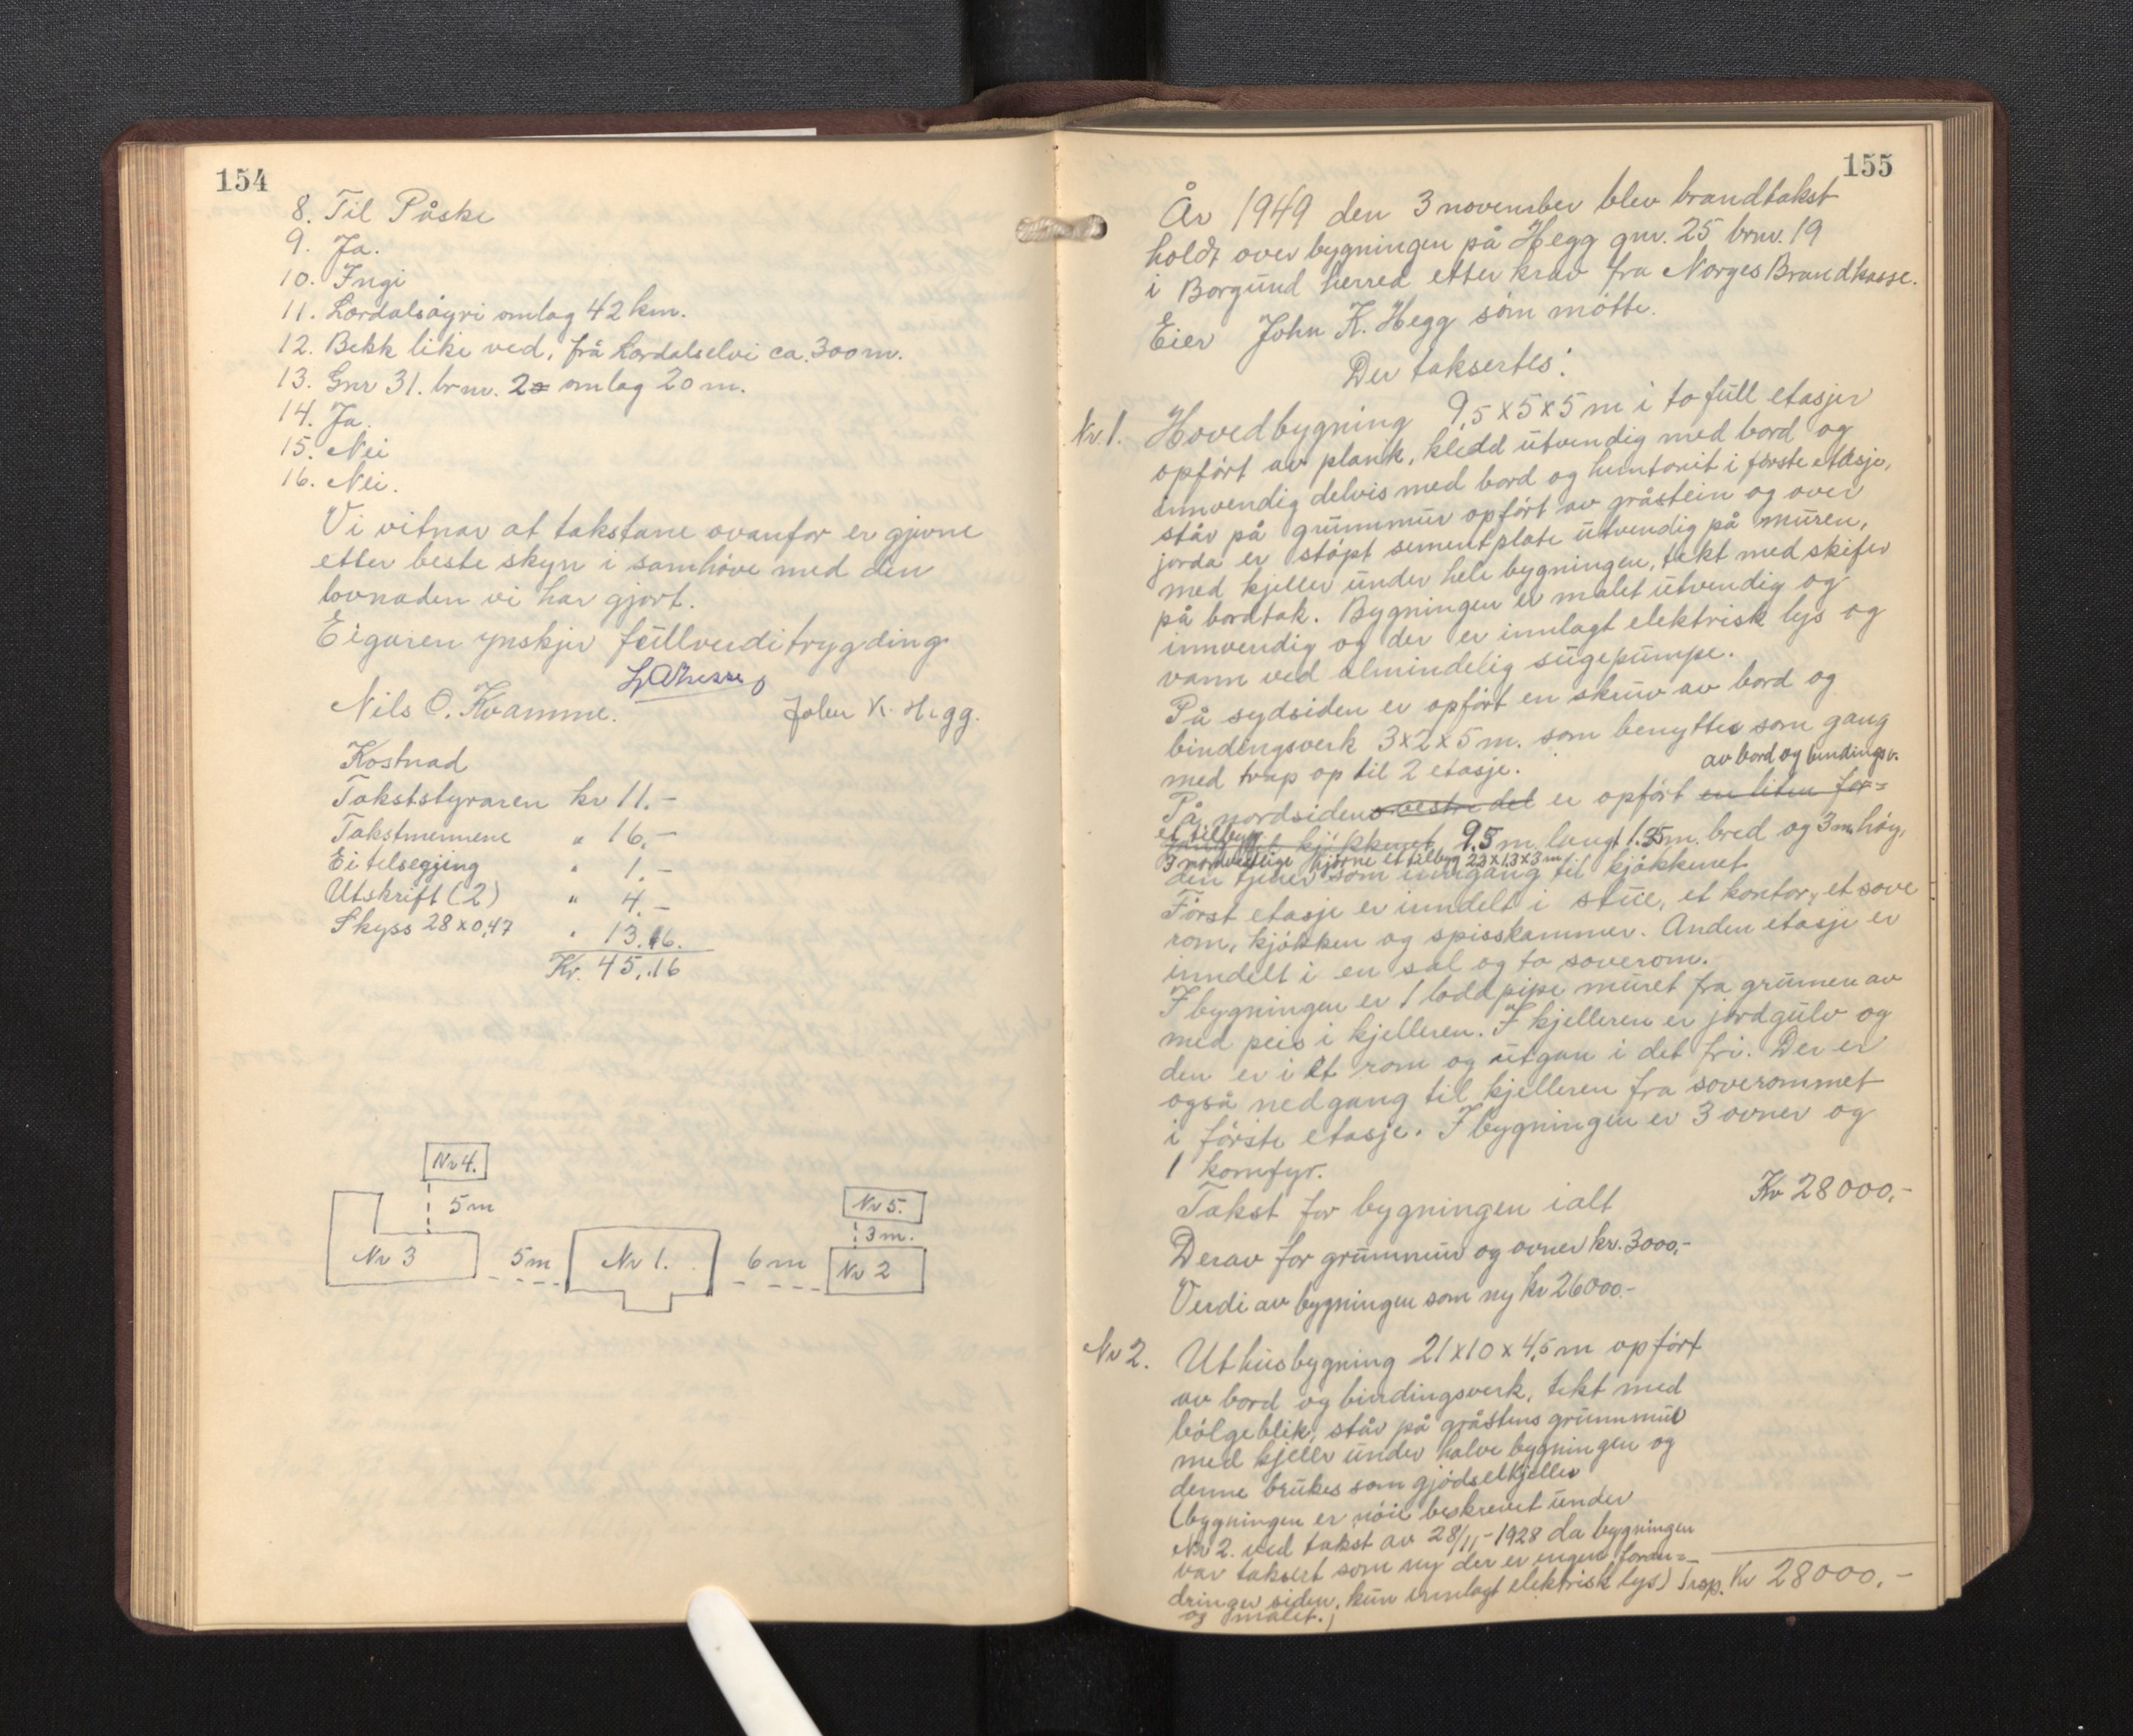 154
8. Til Påske
9. Ja.
10. Ingi
11. Lærdalsøyri omlag 42 km.
12. Bekk like ved, frå Lærdalselvi ca. 300 m.
13. Gnr 31. brnr. 2 omlag 20 m.
14. Ja.
15. Nei
16. Nei.
Vi vitnar at takstane ovanfor er gjevne
etter beste skyn i samhöve med den
lovnaden vi har gjort.
Eigaren ynskjer fullverditrygding
Nils O. Kvamme.
John K. Hegg.
Kostnad
Takststyraren kr 11.-
Takstmennene " 16.-
Ei tilsegjing " 1.-
Utskrift (2) " 4.-
Skyss 28 x 0,47 " 13.16.
Kr. 45.16
Nr 4.
5 m
Nr 5.
3 m.
Nr 3
5 m
Nr 1.
6 m
Nr 2
155
År 1949 den 3 november blev brandtakst
holdt over bygningen på Hegg gnr. 25 brnr. 19
i Borgund herred etter krav fra Norges Brandkasse.
Eier John K. Hegg som mötte.
Der taksertes:
Nr. 1. Hovedbygning 9,5 x 5 x 5 m i to full etasjer
opfört av plank, kledd utvendig med bord og
innvendig delvis med bord og huntonit i förste etasje,
står på grunnmur opfört av gråstein og over
jorda er stöpt sementplate utvendig på muren,
med kjeller under hele bygningen, tekt med skifer
på bordtak. Bygningen er malet utvendig og
innvendig og der er innlagt elektrisk lys og
vann ved almindelig sugepumpe.
På sydsiden er opfört en skruv av bord og
bindingsverk 3 x 2 x 5 m. som benyttes som gang
med trap op til 2 etasje.
av bord og bindingsv.
På nordsiden vestre del er opfört en liten for=
et tilbyg
kjökkenet 9.5 m langt 1.35 m. bred og 3 m. höy,
I nordvestlige hjörne et tilbyg 2.3 x 1.3 x 3 m
den tjener som inngang til kjökkenet.
Först etasje er inndelt i stue, et kontor, et sove
rom, kjökken og spisskammer. Anden etasje er
inndelt i en sal og to soverom.
I bygningen er 1 lodd pipe muret fra grunnen av
med peis i kjelleren. I kjelleren er jordgulv og
den er i et rom og utgan i det fri. Der er
også nedgang til kjelleren fra soverommet
i förste etasje. I bygningen er 3 ovner og
1 komfyr.
Takst for bygningen ialt Kr 28000,-
Derav for grunnmur og ovner kr. 3000,-
Verdi av bygningen som ny kr 26000.-
Nr 2. Uthusbygning 21 x 10 x 4,5 m opfört
av bord og bindingsverk, tekt med
bölgeblik, står på gråstens grunnmur
med kjeller under halve bygningen og
denne brukes som gjödselkjeller
(bygningen er nöie beskrevet under
Nr 2. ved takst av 28/11-1928 da bygningen
var taksert som ny der er ingen foran=
dringer siden, kun innlagt elektrisk lys) Trsp. Kr 28000.-
og malet.)